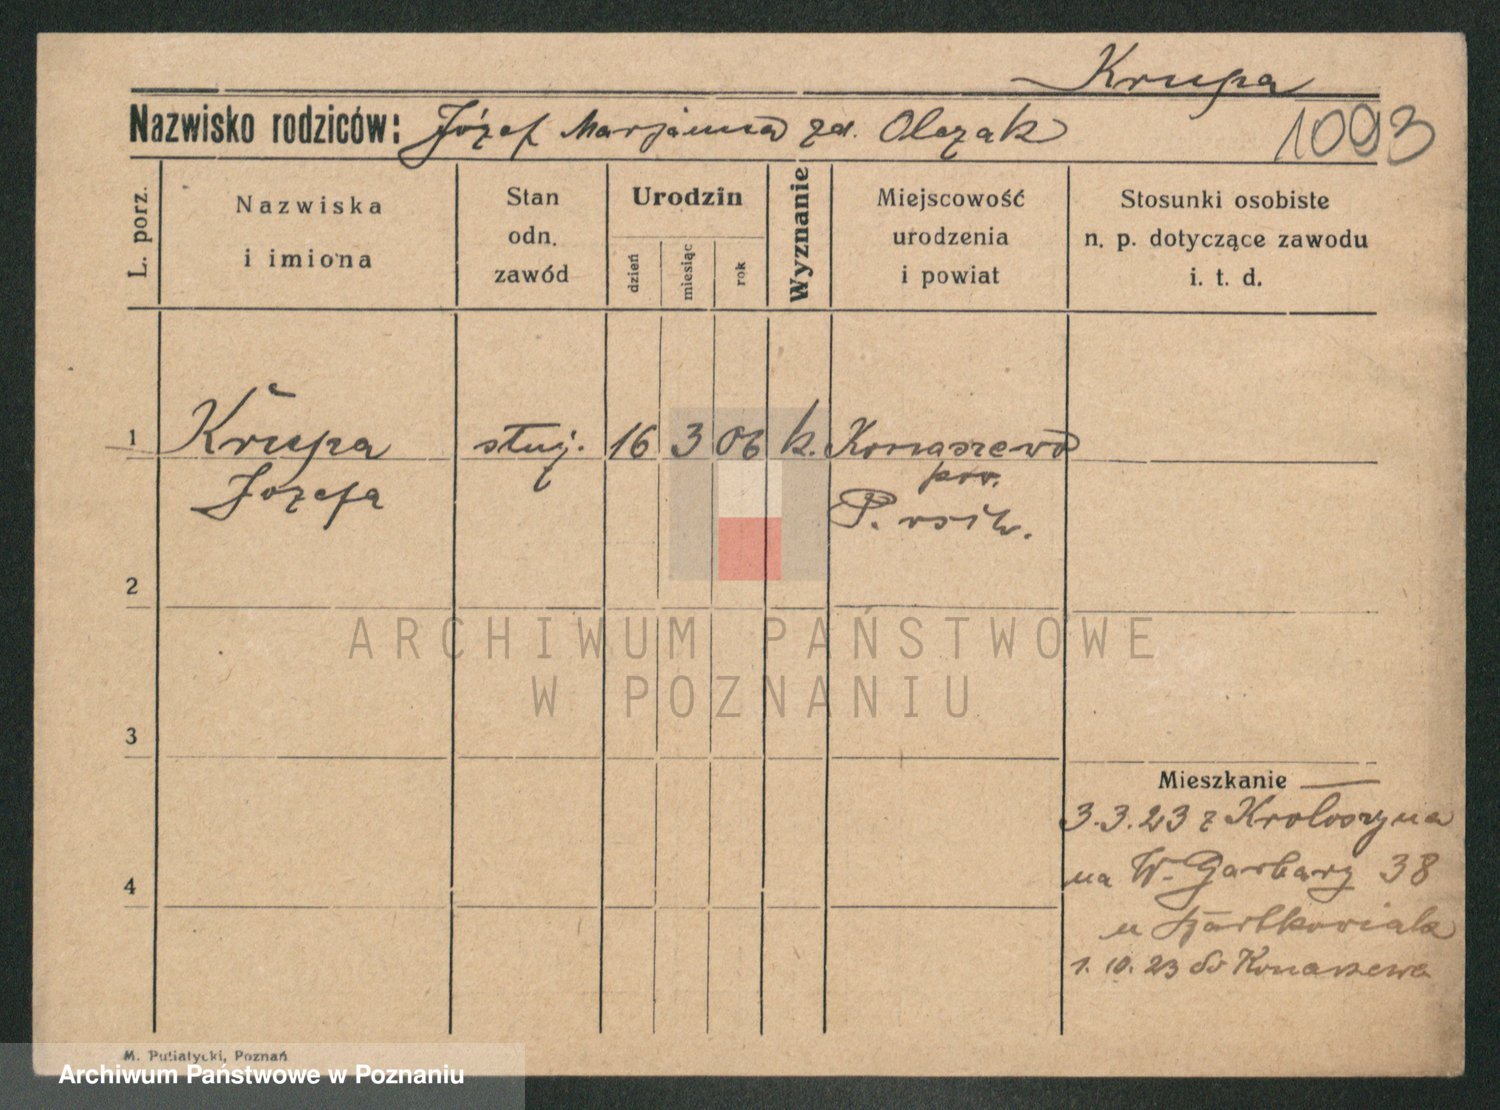 Krupa
Nazwisko rodziców: Józef Marjanna zd. Olczak
1093
L. porz.
Nazwiska
i imiona
Stan
odn.
zawód
Urodzin
dzień
miesiąc
rok
Wyznanie
Miejscowość
urodzenia
i powiat
Stosunki osobiste
n. p. dotyczące zawodu
i. t. d.
1 Krupa służ. 16 3 06 k. Konarzewo
Józefa pow.
P.
2
ARCHIWUM PAŃSTWOWE
W POZNANIU
3
Mieszkanie
3.3.23 z Krotoszyna
4
na W. Garbary 38
u
1. 10. 23 do Konarzewa
M. Putiatycki, Poznań
Archiwum Państwowe w Poznaniu